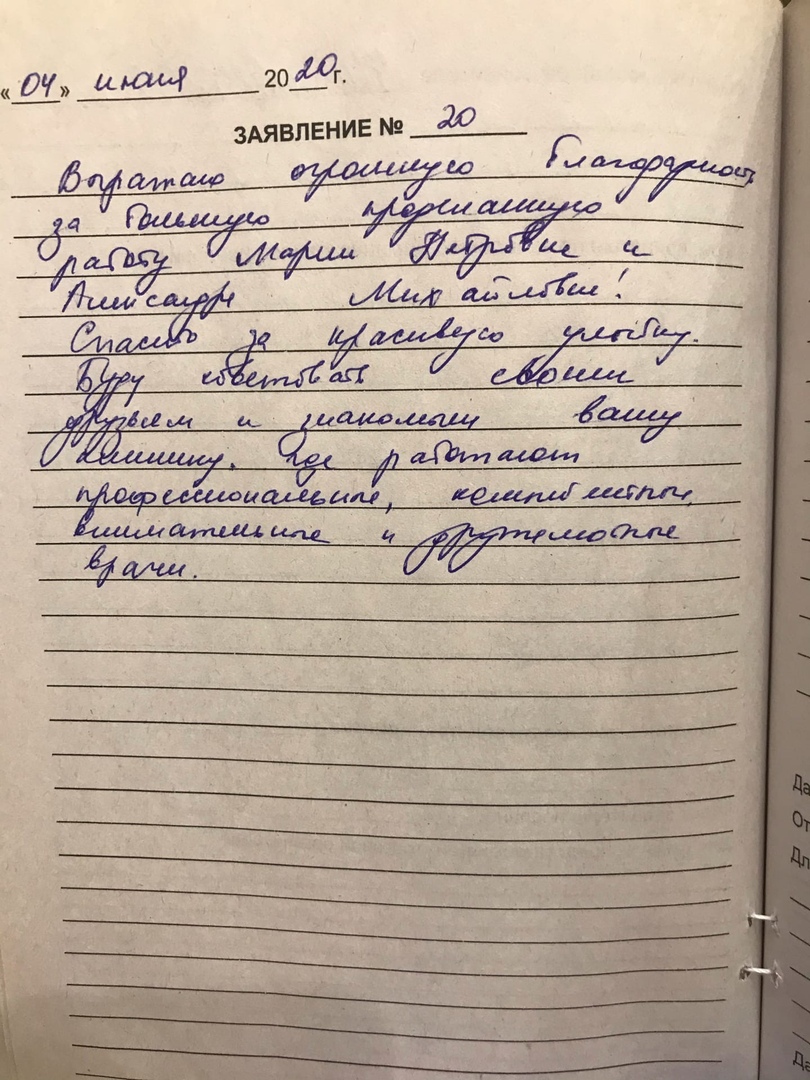 «04» июня 2020 г.
ЗАЯВЛЕНИЕ № 20
Выражаю огромную благодарность
за большую проделанную
работу Марии Петровне и
Александре Михайловне!
Спасибо за красивую улыбку.
Буду советовать своим
друзьям и знакомым вашу
клинику. Где работают
профессиональные, компетентные,
внимательные и дружелюбные
врачи.
Да
От
Дл
Да